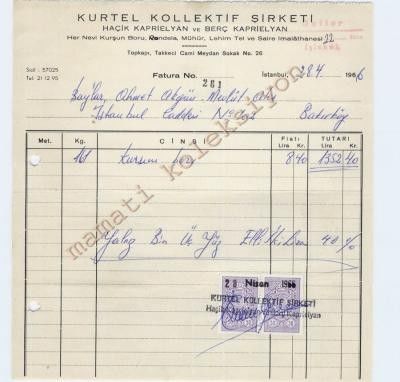 KURTEL KOLLEKTİF ŞİRKETİ
HAÇİK KAPRİELYAN ve BERÇ KAPRİELYAN
Her Nevi Kurşun Boru, Rondela, Mühür, Lehim Tel ve Saire İmalâthanesi
Topkapı, Takkeci Cami Meydan Sokak No. 26
Sicil : 57025
Tel : 21 12 95
Fatura No. 281
İstanbul, 28.4. 1966
Baylar, Ahmet
İstanbul Caddesi No
Bakırköy
Met. Kg. CİNSİ Fiatı Lira Kr. TUTARI Lira Kr.
161 kurşun boru 8 40 1352 40
Yalnız Bin Üç Yüz Elli İki Lira 40
28 Nisan 1966
KURTEL KOLLEKTİF ŞİRKETİ
Haçik Kaprielyan ve Berç Kaprielyan
mamati koleksiyon